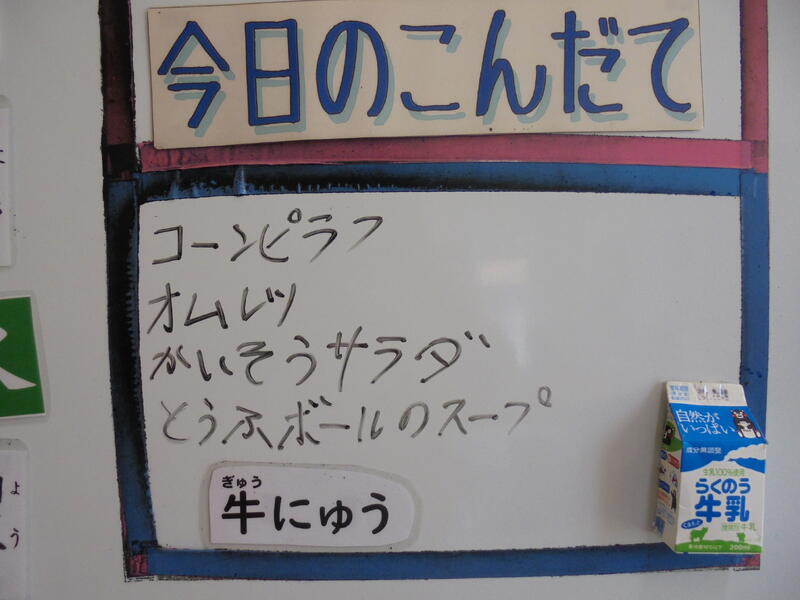 今日のこんだて
コーンピラフ
オムレツ
かいそうサラダ
とうふボールのスープ
ぎゅう
牛にゅう
自然が
いっぱい
成分無調整
生乳100%使用
らくのう
牛乳
200ml
よう